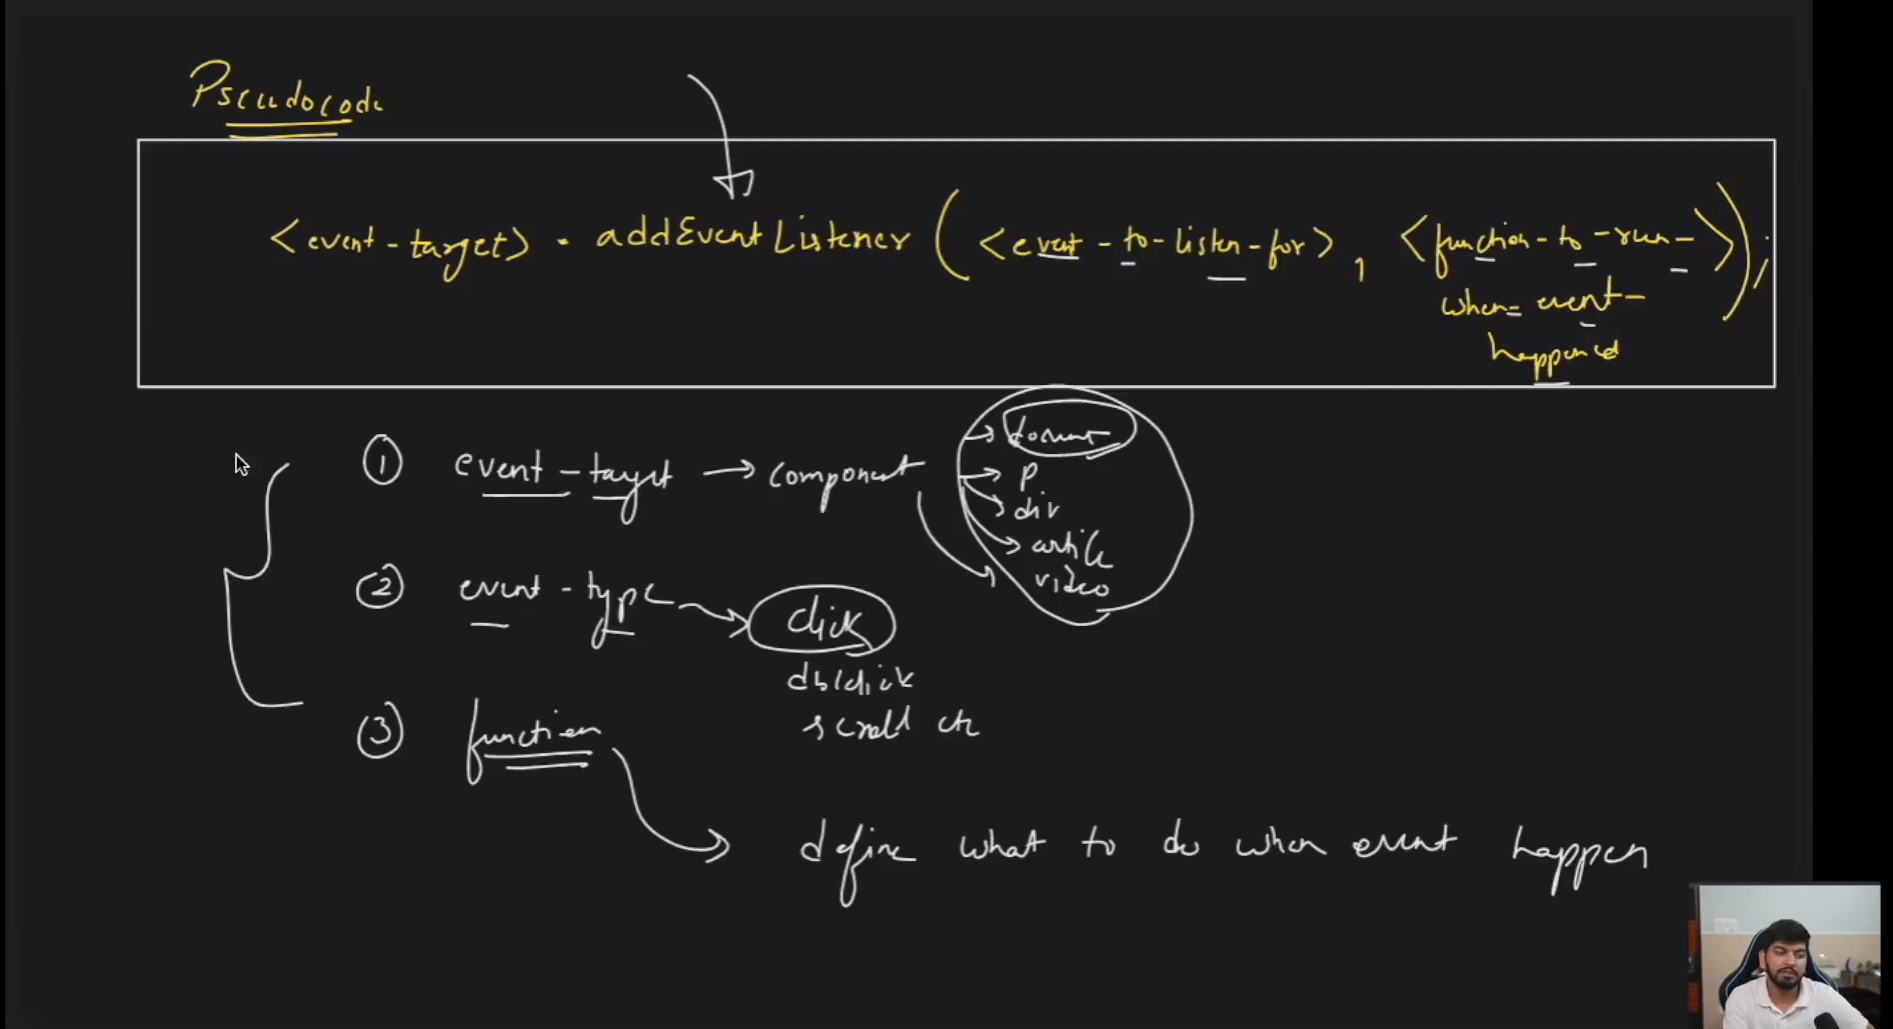 Pseudocode
<event-target> . addEventListener ( <event-to-listen-for> , <function-to-run-
when-event-
happened> );
① event-target → component → document
→ p
→ div
→ article
video
② event-type → click
dblclick
scroll etc
③ function
→ define what to do when event happen